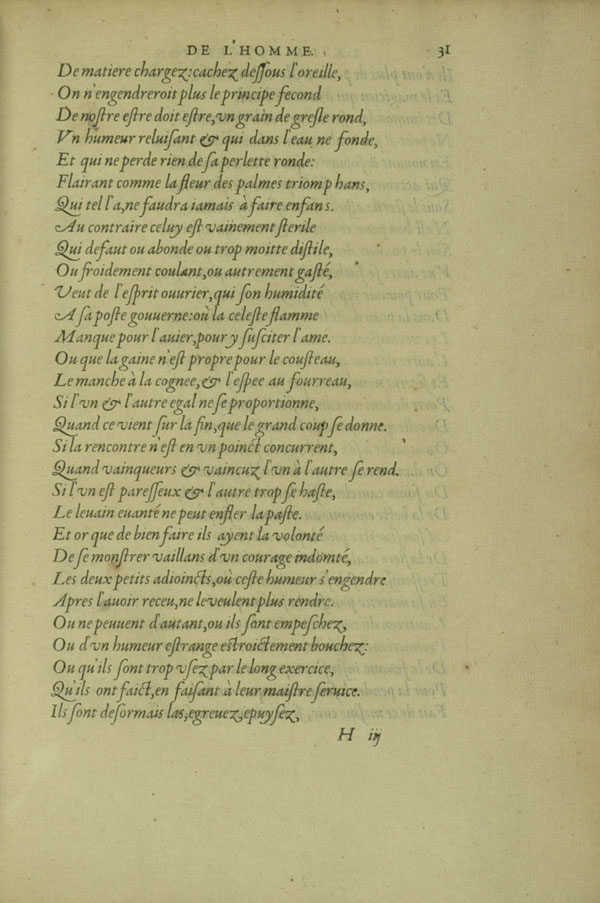 DE L'HOMME. 31
De matiere chargez: cachez deſſous l'oreille,
On n'engendreroit plus le principe fecond
De noſtre eſtre doit eſtre, vn grain de greſle rond,
Vn humeur reluiſant & qui dans l'eau ne fonde,
Et qui ne perde rien de ſa perlette ronde:
Flairant comme la fleur des palmes triomphans,
Qui tel l'a, ne faudra iamais à faire enfans.
Au contraire celuy eſt vainement ſterile
Qui defaut ou abonde ou trop moitte diſtile,
Ou froidement coulant, ou autrement gaſté,
Veut de l'eſprit ouurier, qui ſon humidité
A ſa poſte gouuerne: où la celeſte flamme
Manque pour l'auier, pour y ſuſciter l'ame.
Ou que la gaine n'eſt propre pour le couſteau,
Le manche à la cognee, & l'eſpee au fourreau,
Si l'vn & l'autre egal ne ſe proportionne,
Quand ce vient ſur la fin, que le grand coup ſe donne.
Si la rencontre n'eſt en vn poinct concurrent,
Quand vainqueurs & vaincuz l'vn à l'autre ſe rend.
Si l'vn eſt pareſſeux & l'autre trop ſe haſte,
Le leuain euanté ne peut enfler la paſte.
Et or que de bien faire ils ayent la volonté
De ſe monſtrer vaillans d'vn courage indomté,
Les deux petits adioincts, où ceſte humeur s'engendre
Apres l'auoir receu, ne le veulent plus rendre.
Ou ne peuuent d'autant, ou ils ſont empeſchez,
Ou d'vn humeur eſtrange eſtroictement bouchez:
Ou qu'ils ſont trop vſez par le long exercice,
Qu'ils ont faict, en faiſant à leur maiſtre ſeruice.
Ils ſont deſormais las, egreuez, epuyſez,
H iij